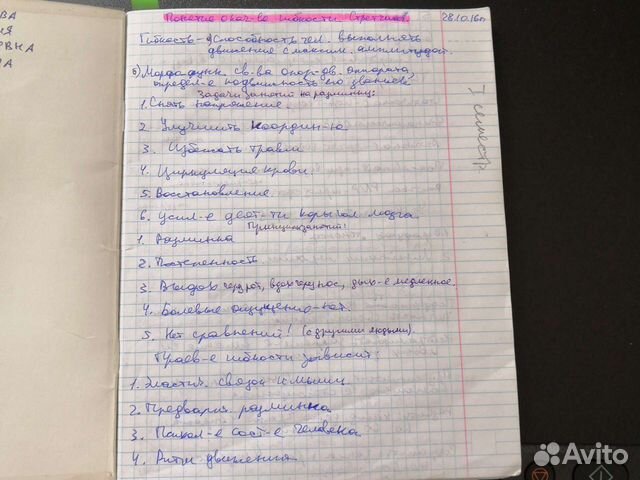 ВА
ИЯ
РВКА
А
Понятие о кач-ве гибкости. Стретчинг. 28.10.16г.
Гибкость - а) способность чел. выполнять
движение с максим. амплитудой.
б) Морфофункц. св-ва опор-дв. аппарата,
определ-е подвижность его звеньев.
Задачи занятий на разминку:
1. Снять напряжение.
I семестр
2. Улучшить координ-ю.
3. Избежать травм
4. Циркуляция крови.
5. Восстановление
6. Усил-е деят-ти коры гол. мозга.
Принципы занятий:
1. Разминка
2. Постепенность
3. Выдох через рот, вдох через нос, дых-е медленное.
4. Болевые ощущения - нет.
5. Нет сравнений! (с другими людьми).
гибкости зависит:
1. Эластич. связок и мышц
2. Предварит. разминка
3. Психол-е сост-е человека
4. Ритм движения
Avito